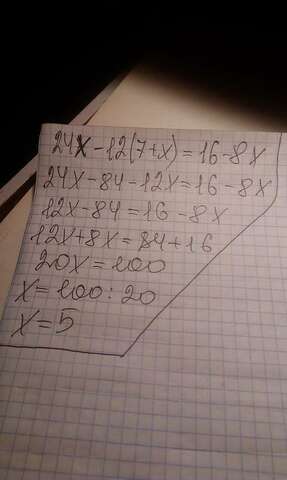 24x - 12(7+x) = 16 - 8x
24x - 84 - 12x = 16 - 8x
12x - 84 = 16 - 8x
12x + 8x = 84 + 16
20x = 100
x = 100 : 20
x = 5